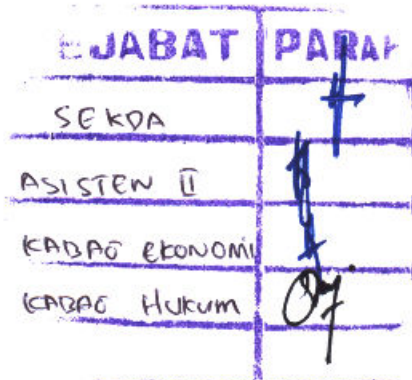 EJABAT PARAF
SEKDA
ASISTEN II
KABAG EKONOMI
KABAG HUKUM